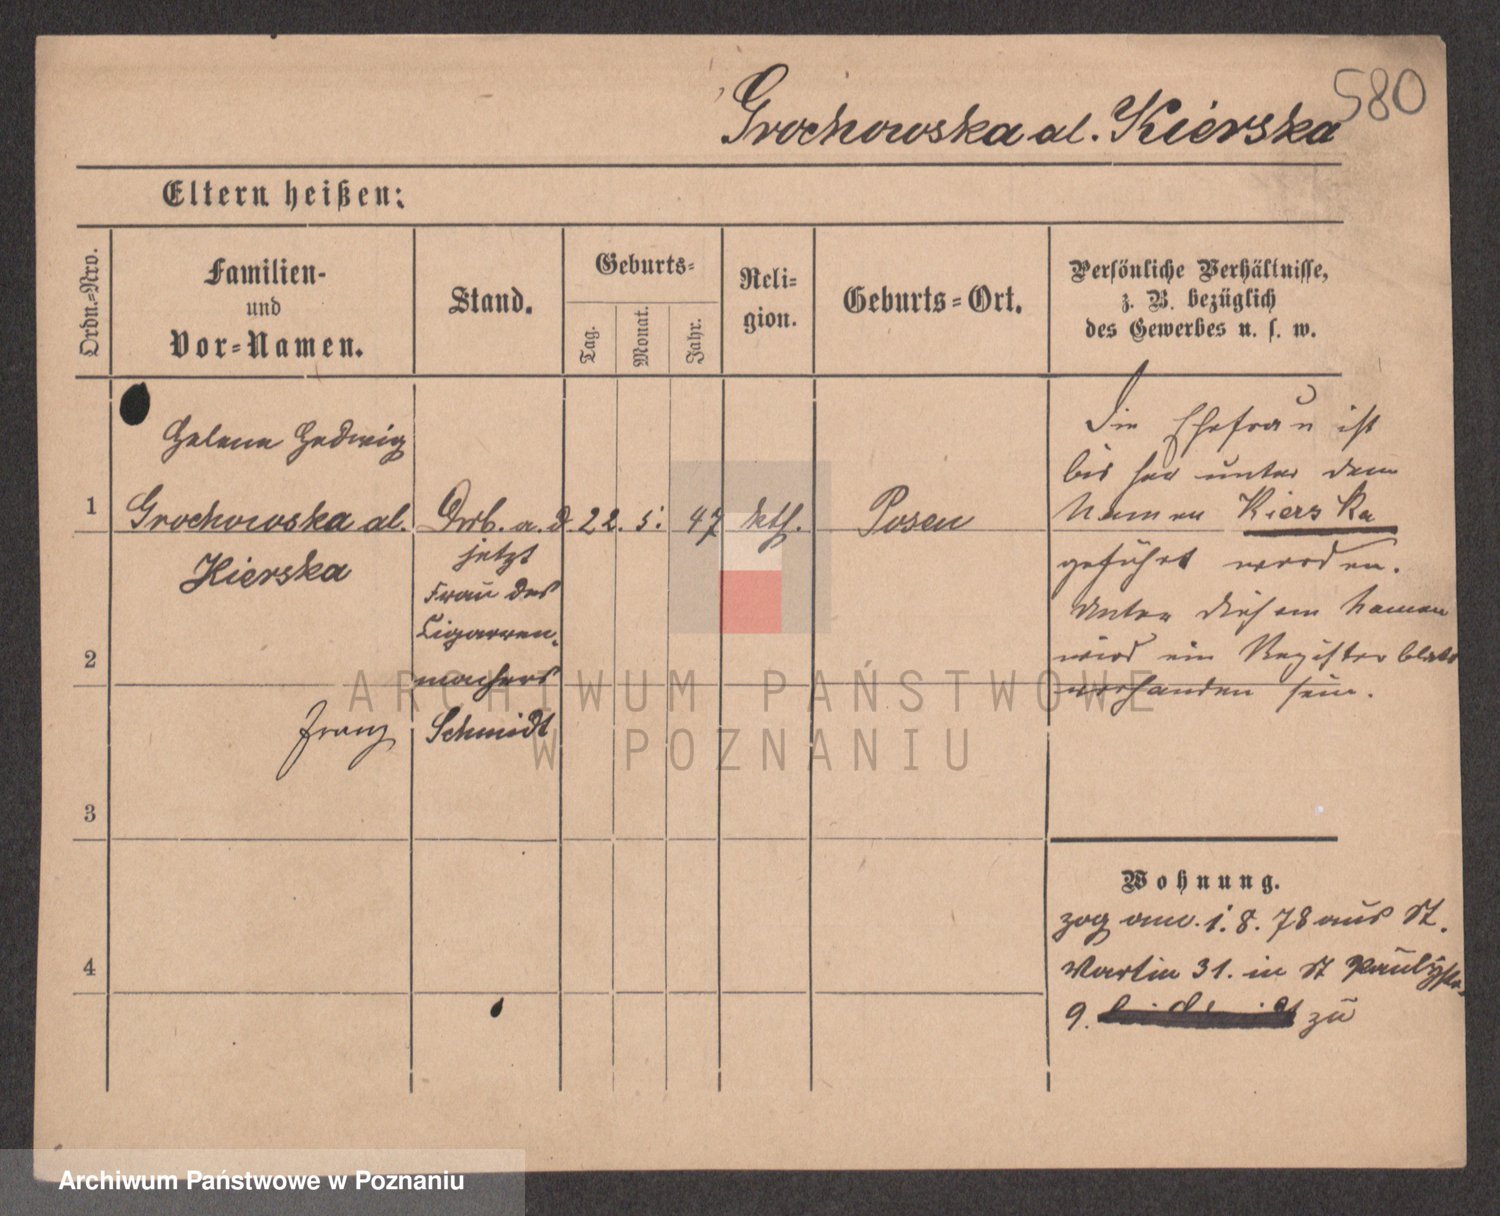 580
Grochowska al. Kierska
Eltern heißen:
Ordn.-Nro.
Familien-
und
Vor-Namen.
Stand.
Geburts-
Tag.
Monat.
Jahr.
Reli-
gion.
Geburts-Ort.
Persönliche Verhältnisse,
z. B. bezüglich
des Gewerbes u. s. w.
1
Helene Hedwig
Grochowska al.
Kierska
Arb. a. d.
jetzt
Frau des
Cigarren-
machers
Franz Schmidt
22. 5. 47
kth.
Posen
Die Ehefrau ist
bis her unter dem
Namen Kierska
geführt worden.
Unter diesem Namen
wird ein Registerblatt
vorhanden sein.
2
3
4
Wohnung.
zog am 1. 8. 78 aus St.
Martin 31. in St Paulystr.
9. zu
ARCHIWUM PAŃSTWOWE
W POZNANIU
Archiwum Państwowe w Poznaniu